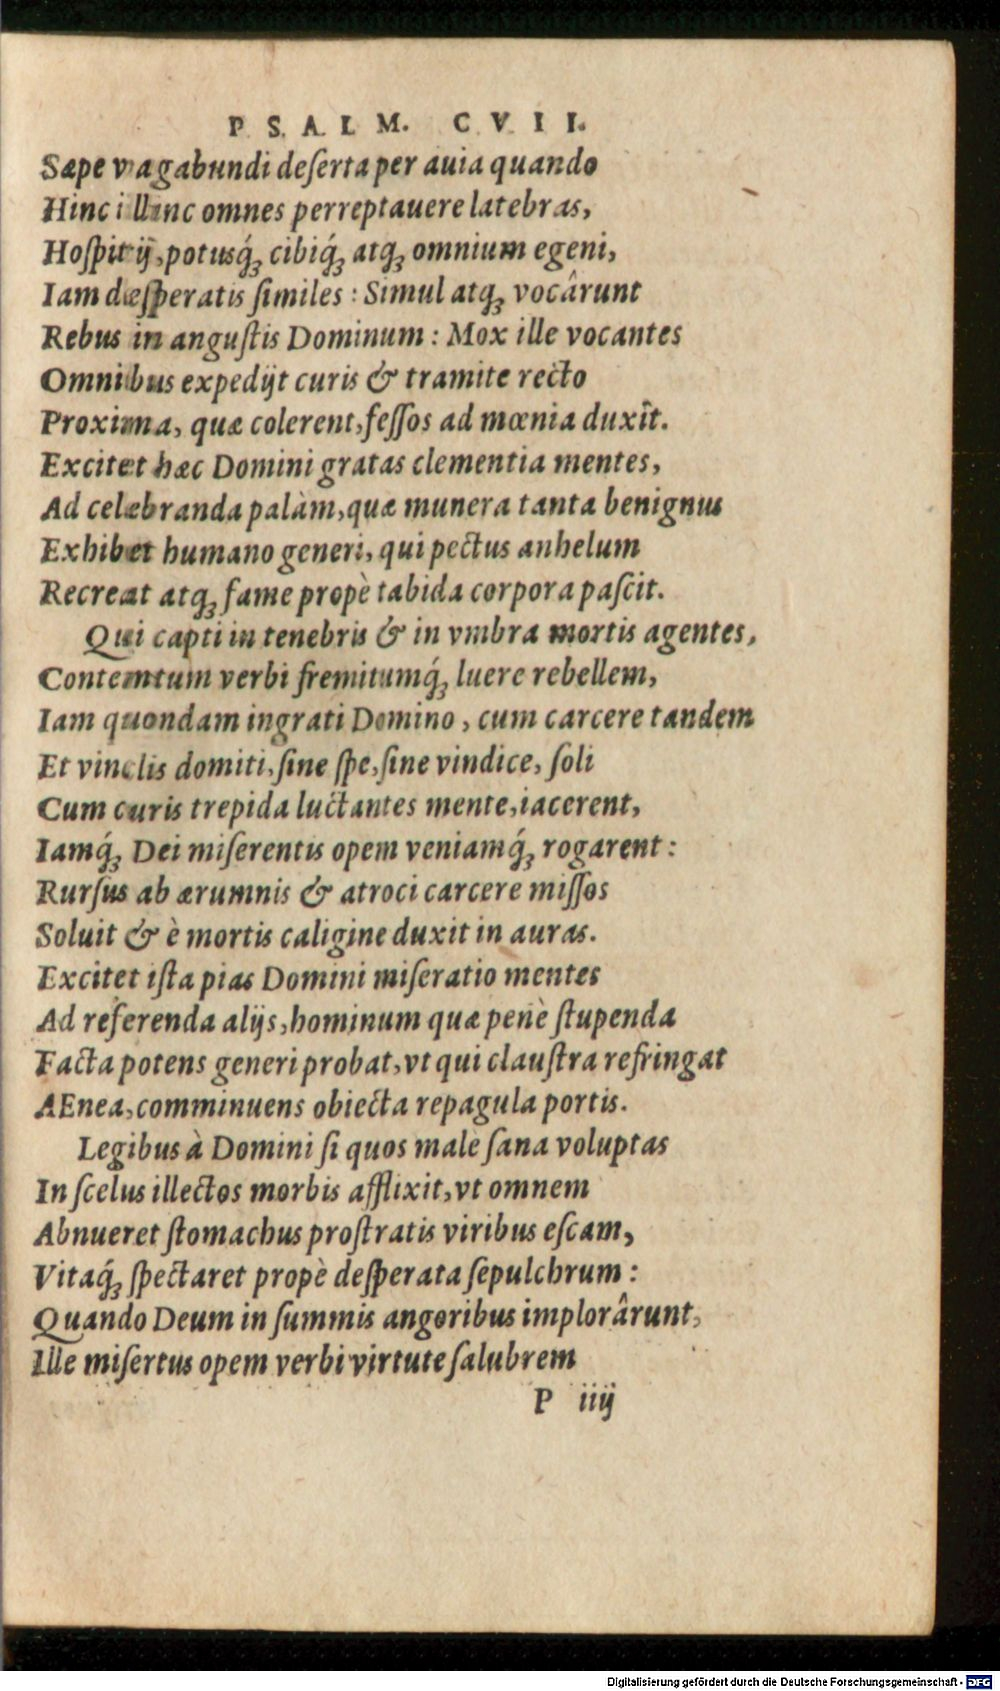 PSALM. CVII.
Sæpe vagabundi deſerta per auia quando
Hinc illinc omnes perreptauere latebras,
Hoſpitij, potusq́ꝫ cibiq́ꝫ atqꝫ omnium egeni,
Iam deſperatis ſimiles : Simul atqꝫ vocârunt
Rebus in anguſtis Dominum : Mox ille vocantes
Omnibus expedijt curis & tramite recto
Proxima, quæ colerent, feſſos ad mœnia duxît.
Excitet hæc Domini gratas clementia mentes,
Ad celebranda palàm, quæ munera tanta benignus
Exhibet humano generi, qui pectus anhelum
Recreat atqꝫ fame propè tabida corpora paſcit.
Qui capti in tenebris & in vmbra mortis agentes,
Contemtum verbi fremitumq́ꝫ luere rebellem,
Iam quondam ingrati Domino, cum carcere tandem
Et vinclis domiti, ſine ſpe, ſine vindice, ſoli
Cum curis trepida luctantes mente, iacerent,
Iamq́ꝫ Dei miſerentis opem veniamq́ꝫ rogarent :
Rurſus ab ærumnis & atroci carcere miſſos
Soluit & è mortis caligine duxit in auras.
Excitet iſta pias Domini miſeratio mentes
Ad referenda alijs, hominum quæ penè ſtupenda
Facta potens generi probat, vt qui clauſtra refringat
AEnea, comminuens obiecta repagula portis.
Legibus à Domini ſi quos male ſana voluptas
In ſcelus illectos morbis afflixit, vt omnem
Abnueret ſtomachus proſtratis viribus eſcam,
Vitaq́ꝫ ſpectaret propè deſperata ſepulchrum :
Quando Deum in ſummis angoribus implorârunt,
Ille miſertus opem verbi virtute ſalubrem
P iiij
Digitalisierung gefördert durch die Deutsche Forschungsgemeinschaft - DFG